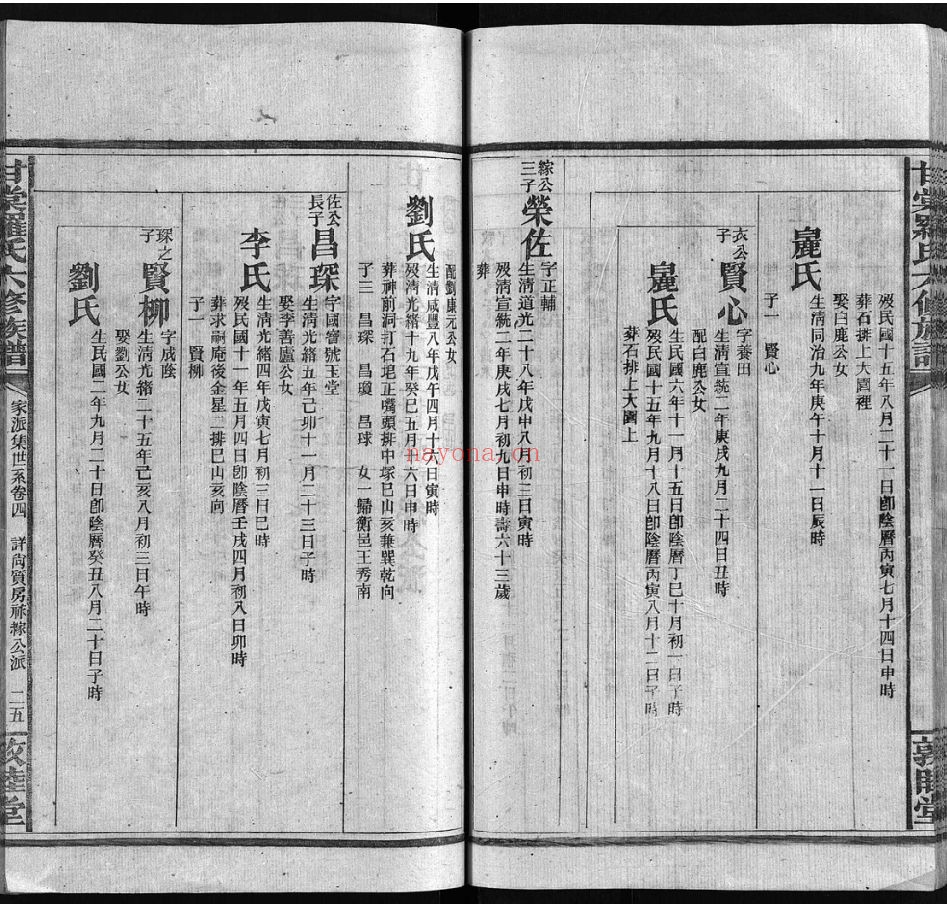 甘棠羅氏六修族譜
歿民國十五年八月二十一日卽陰曆丙寅七月十四日申時
葬石排上大園裡
娶白鹿公女
生淸同治九年庚午十月十一日辰時
子一　賢心
衣公子
賢心
字養田
生淸宣統二年庚戌九月二十四日丑時
配白鹿公女
生民國六年十一月十五日卽陰曆丁巳十月初一日子時
歿民國十五年九月十八日卽陰曆丙寅八月十二日子時
葬石排上大園上
稼公三子
榮佐
字正輔
生淸道光二十八年戊申八月初三日寅時
歿淸宣統二年庚戌七月初九日申時壽六十三歲
葬
配劉康元公女
劉氏
生淸咸豐八年戊午四月十六日寅時
歿淸光緒十九年癸巳五月十六日申時
葬神前祠洞打石垇正嘴頭排中塚巳山亥兼巽乾向
子三　昌琛　昌瓊　昌球　女一歸衡邑王秀南
佐公長子
昌琛
字國寶號玉堂
生淸光緒五年己卯十一月二十三日子時
娶李善盧公女
李氏
生淸光緒四年戊寅七月初三日巳時
歿民國十一年五月四日卽陰曆壬戌四月初八日卯時
葬求嗣庵後金星二排巳山亥向
子一　賢柳
琛之子
賢柳
字成蔭
生淸光緒二十五年己亥八月初三日午時
娶劉公女
劉氏
生民國二年九月二十日卽陰曆癸丑八月二十日子時
甘棠羅氏六修族譜
家派集世系卷四
二五
敦睦堂
nayona.cn